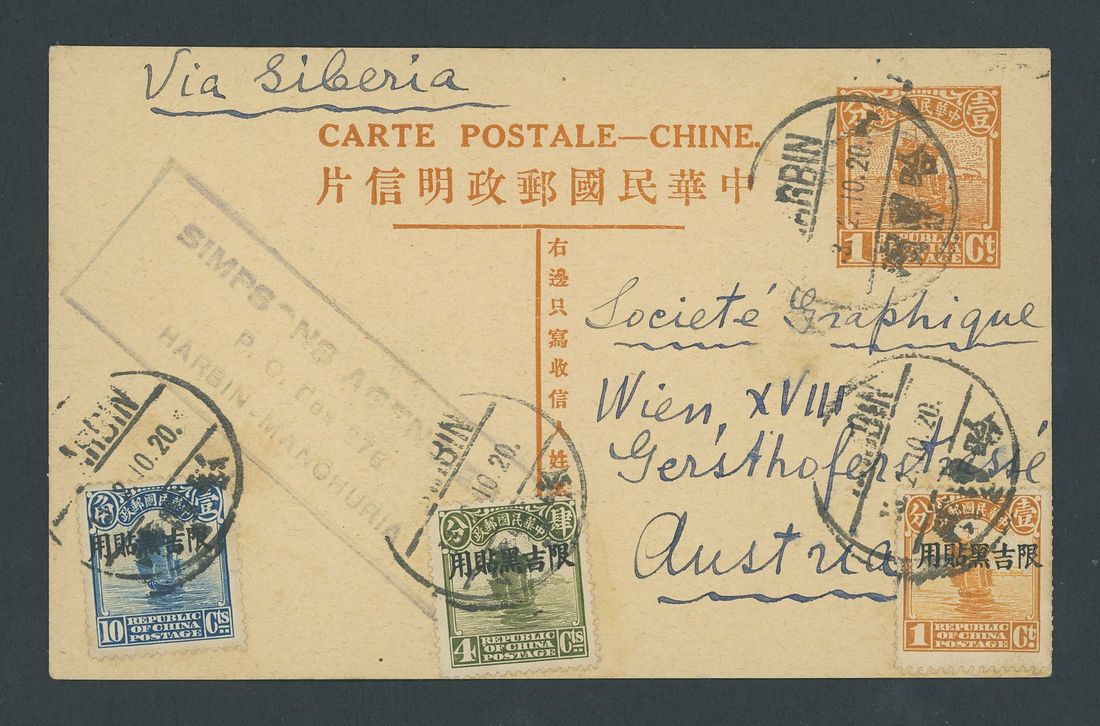 Via Siberia
CARTE POSTALE—CHINE.
片信明政郵國民華中
分 壹
1 REPUBLIC OF CHINA POSTAGE Ct.
HARBIN
2.10.20.
哈
右邊只寫收信人姓
SIMPSONS AGEN
P. O. Box 276
HARBIN-MANCHURIA
Societé Graphique
Wien, XVIII
Gersthoferstrasse
Austria
ARBIN
10.20.
角 政郵國民華中 壹
用貼黑吉限
10 REPUBLIC OF CHINA POSTAGE Cts
RBIN
10.20.
分 政郵國民華中 肆
用貼黑吉限
4 REPUBLIC OF CHINA POSTAGE Cts
2.10.20.
分 政郵國民華中 壹
用貼黑吉限
1 REPUBLIC OF CHINA POSTAGE Ct.